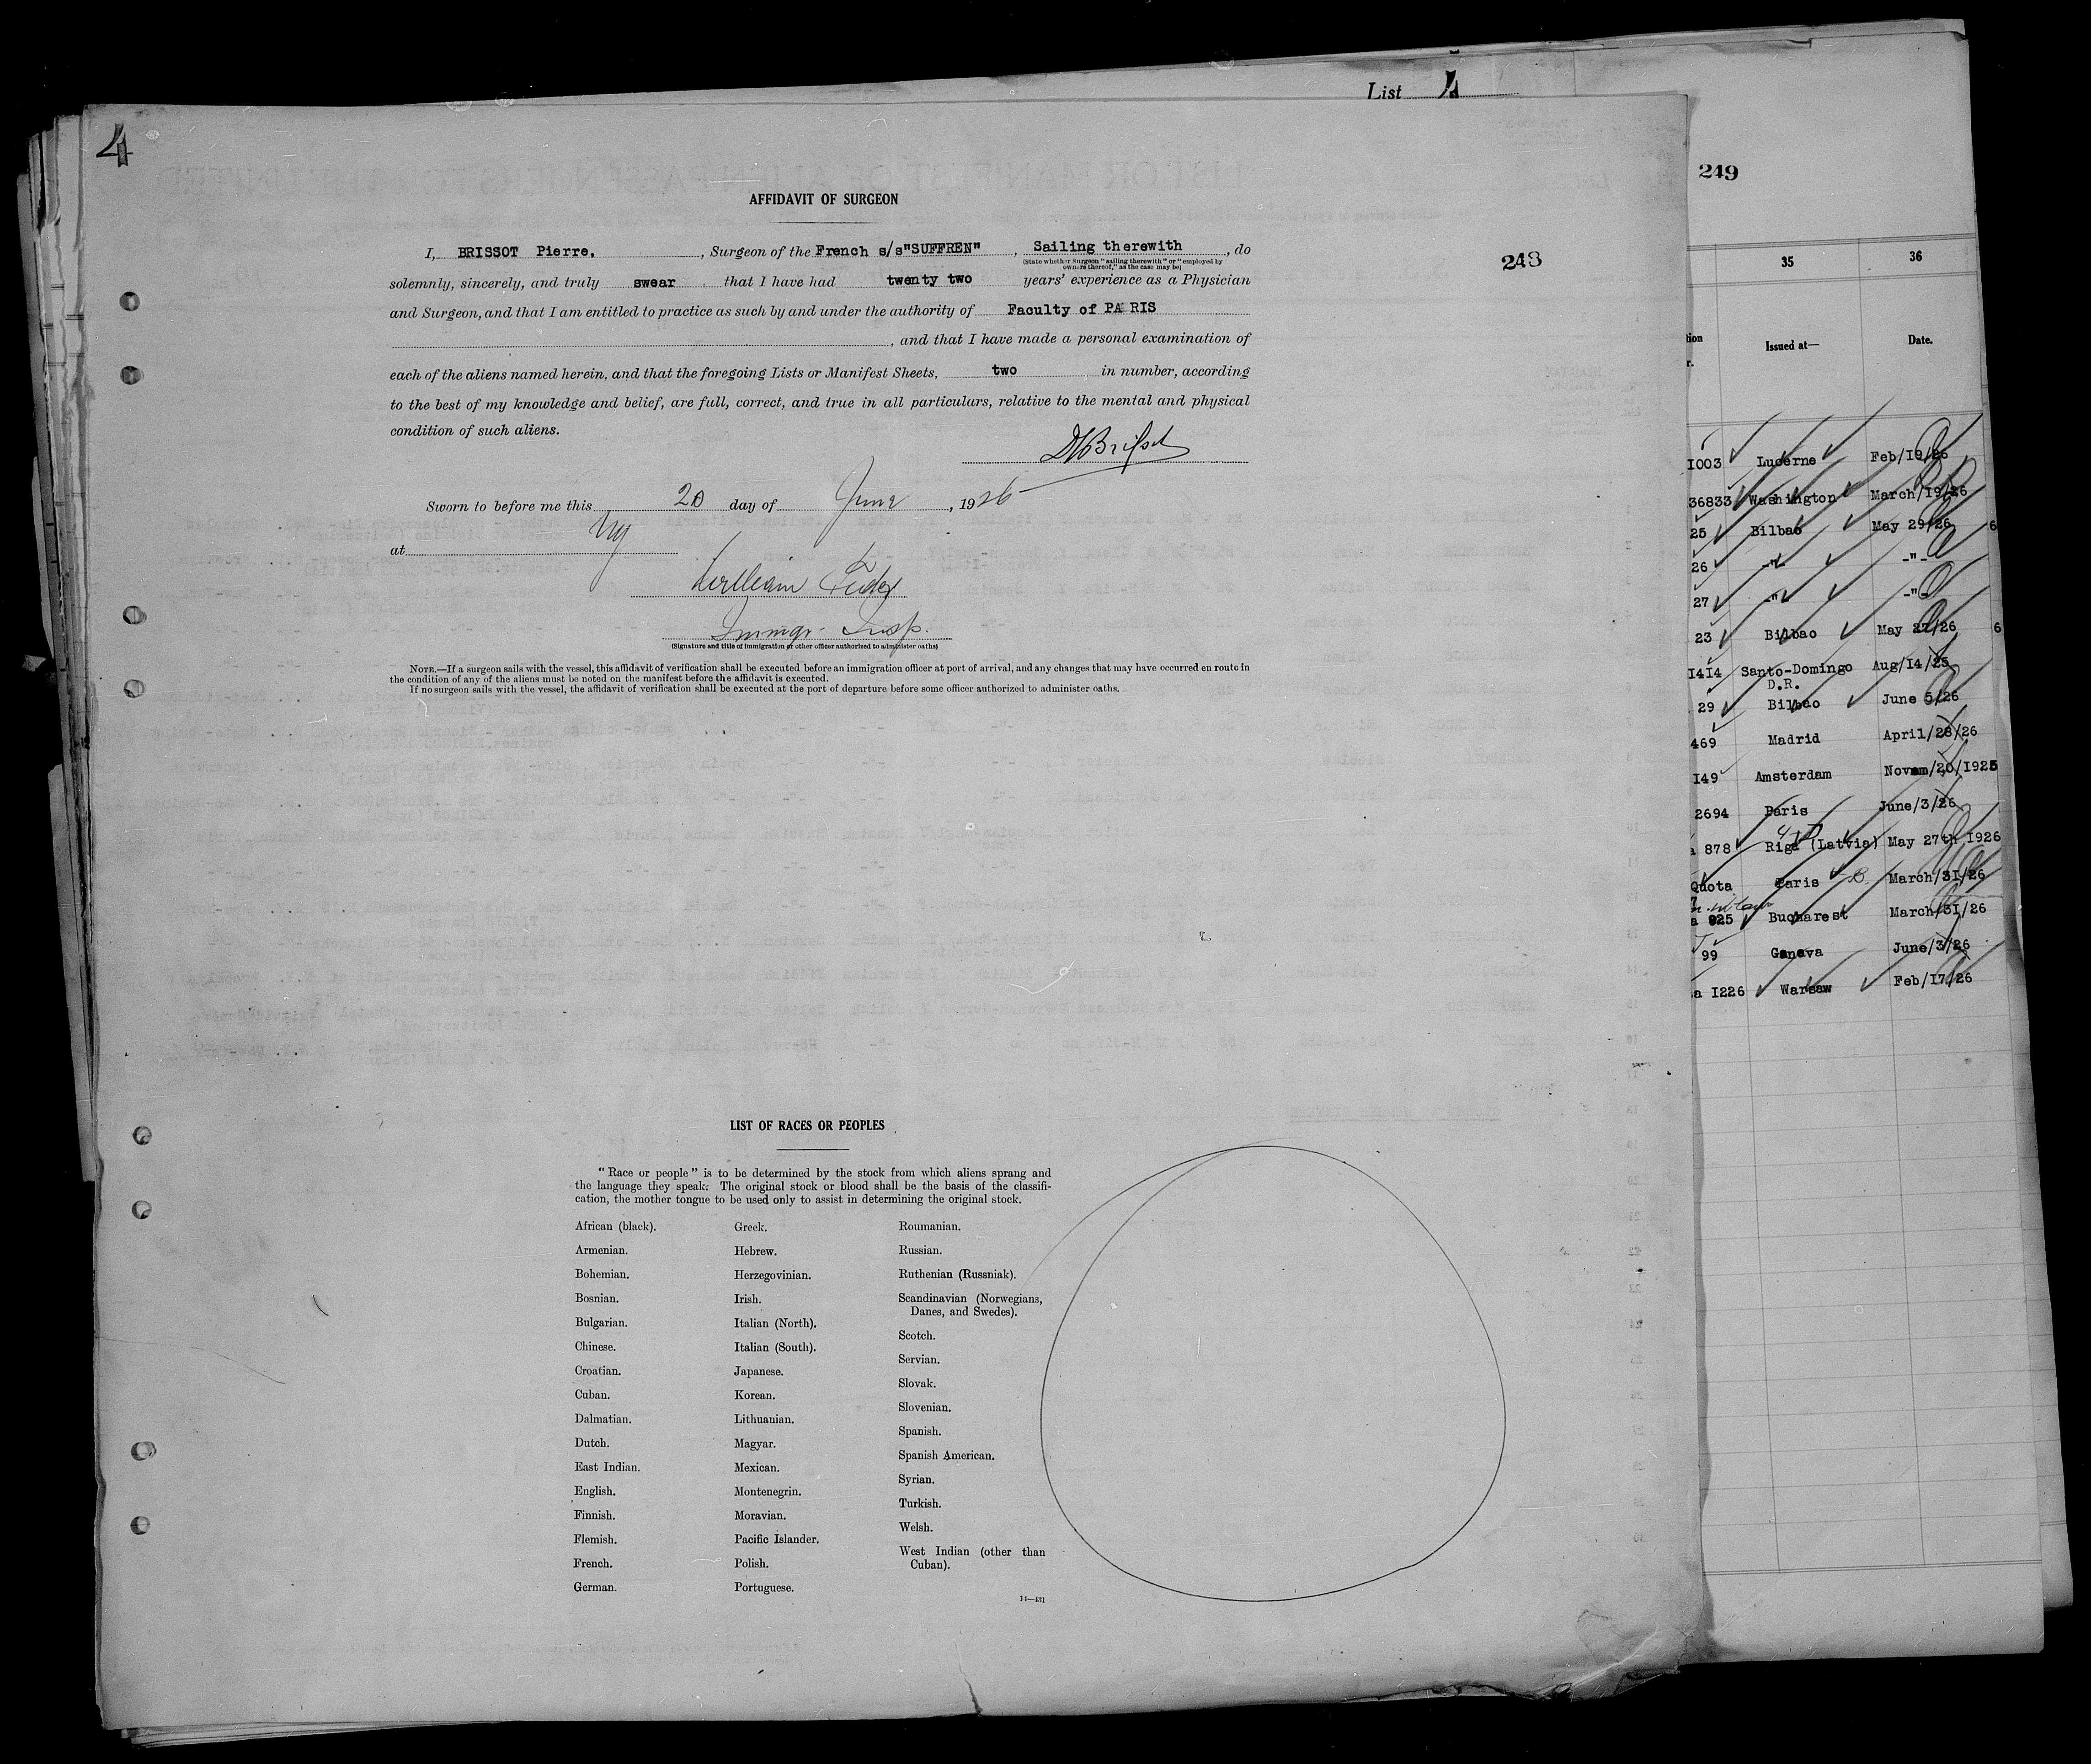 List 4
4
249
AFFIDAVIT OF SURGEON
I, BRISSOT Pierre, , Surgeon of the French s/s"SUFFREN" , Sailing therewith , do
(State whether Surgeon "sailing therewith" or "employed by
owners thereof," as the case may be)
248
solemnly, sincerely, and truly swear , that I have had twenty two years' experience as a Physician
and Surgeon, and that I am entitled to practice as such by and under the authority of Faculty of PARIS
, and that I have made a personal examination of
each of the aliens named herein, and that the foregoing Lists or Manifest Sheets, two in number, according
to the best of my knowledge and belief, are full, correct, and true in all particulars, relative to the mental and physical
condition of such aliens.
Sworn to before me this 20 day of June , 1926
at Ny
William
Immgr. Insp.
(Signature and title of immigration or other officer authorized to administer oaths)
NOTE.—If a surgeon sails with the vessel, this affidavit of verification shall be executed before an immigration officer at port of arrival, and any changes that may have occurred en route in
the condition of any of the aliens must be noted on the manifest before the affidavit is executed.
If no surgeon sails with the vessel, the affidavit of verification shall be executed at the port of departure before some officer authorized to administer oaths.
LIST OF RACES OR PEOPLES
"Race or people" is to be determined by the stock from which aliens sprang and
the language they speak. The original stock or blood shall be the basis of the classifi-
cation, the mother tongue to be used only to assist in determining the original stock.
African (black).
Armenian.
Bohemian.
Bosnian.
Bulgarian.
Chinese.
Croatian.
Cuban.
Dalmatian.
Dutch.
East Indian.
English.
Finnish.
Flemish.
French.
German.
Greek.
Hebrew.
Herzegovinian.
Irish.
Italian (North).
Italian (South).
Japanese.
Korean.
Lithuanian.
Magyar.
Mexican.
Montenegrin.
Moravian.
Pacific Islander.
Polish.
Portuguese.
Roumanian.
Russian.
Ruthenian (Russniak).
Scandinavian (Norwegians,
Danes, and Swedes).
Scotch.
Servian.
Slovak.
Slovenian.
Spanish.
Spanish American.
Syrian.
Turkish.
Welsh.
West Indian (other than
Cuban).
14—431
35 36
Issued at— Date.
1003 Lucerne Feb/19/26
36833 Washington March/19/26
25 Bilbao May 29/26 6
26 -"- -"-
27 -"- -"-
23 Bilbao May 27/26 6
1414 Santo-Domingo Aug/14/25
D.R.
29 Bilbao June 5/26
469 Madrid April/28/26
149 Amsterdam Novem/20/1925
2694 Paris June/3/26
a 878 Riga (Latvia) May 27th 1926
Quota Paris March/31/26
a 925 Bucharest March/31/26
99 Geneva June/3/26
a 1226 Warsaw Feb/17/26